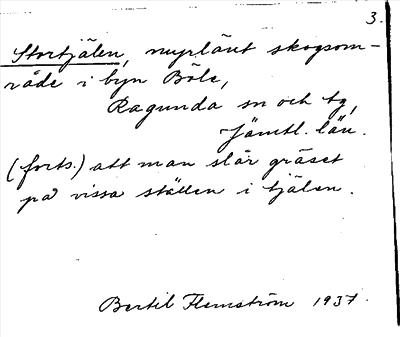 3.
Stortjälen, myrlänt skogsom-
råde i byn Böle,
Ragunda sn och tg,
Jämtl. län.
(forts.) att man slår gräset
på vissa ställen i tjälen.
Bertil Flemström 1937.